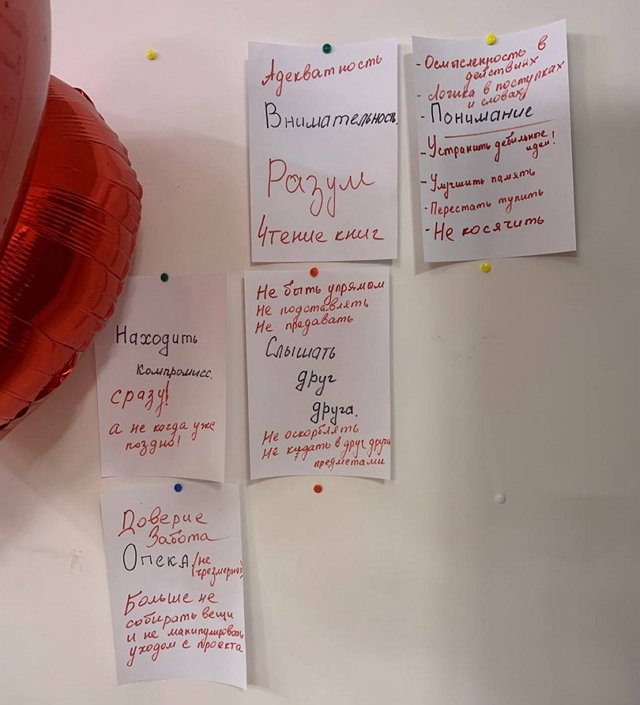 Адекватность
Внимательность
Разум
Чтение книг
- Осмысленность в
действиях
- Логика в поступках
и словах
- Понимание
- Устранить дебильные
идеи!
- Улучшить память
- Перестать тупить
- Не косячить
Находить
компромисс.
сразу!
а не когда уже
поздно!
Не быть упрямом
Не подставлять
Не предавать
Слышать
друг
друга.
Не оскорблять
Не кидать в друг друга
предметами
Доверие
Забота
Опека (не
чрезмерная)
Больше не
собирать вещи
и не манипулировать
уходом с проекта